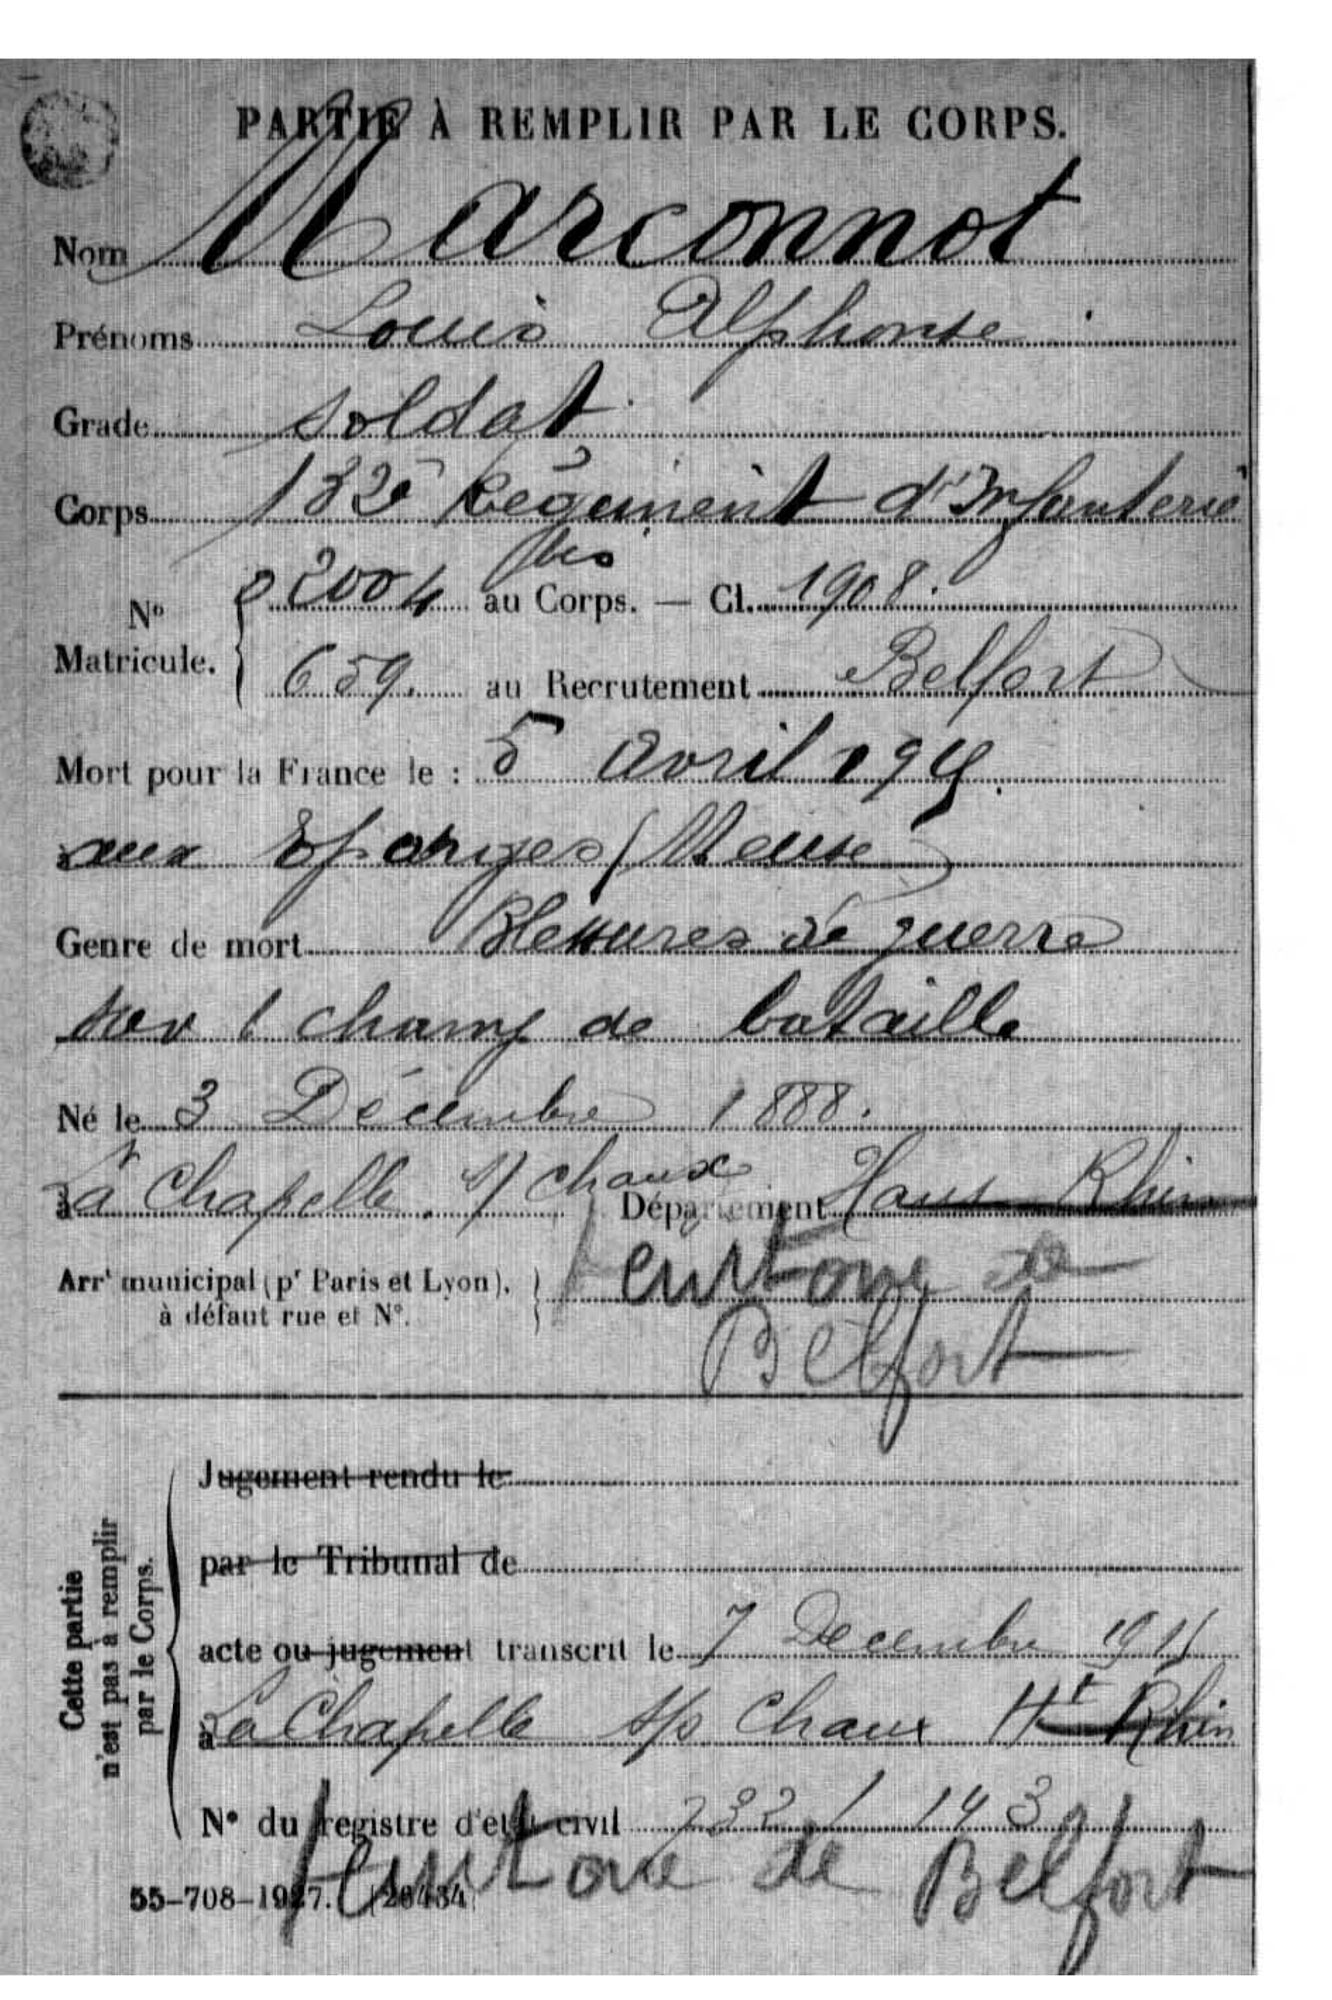 PARTIE À REMPLIR PAR LE CORPS.
Nom Marconnot
Prénoms Louis Alphonse
Grade soldat
Corps 132e Régiment d'Infanterie
bis
No Matricule. 2004 au Corps. — Cl. 1908.
659. au Recrutement Belfort
Mort pour la France le : 5 avril 1915.
aux Eparges (Meuse)
Genre de mort Blessures de guerre
sur l champ de bataille
Né le 3 Décembre 1888.
à La Chapelle s/ Chaux Département Haut Rhin
Arrt municipal (pr Paris et Lyon),
à défaut rue et N°.
territoire de
Belfort
Cette partie
n'est pas à remplir
par le Corps.
Jugement rendu le
par le Tribunal de
acte ou jugement transcrit le 7 Décembre 1915
à La Chapelle s/s Chaux Ht Rhin
N° du registre d'état civil 732 / 143
territoire de Belfort
55-708-1927. [26434]